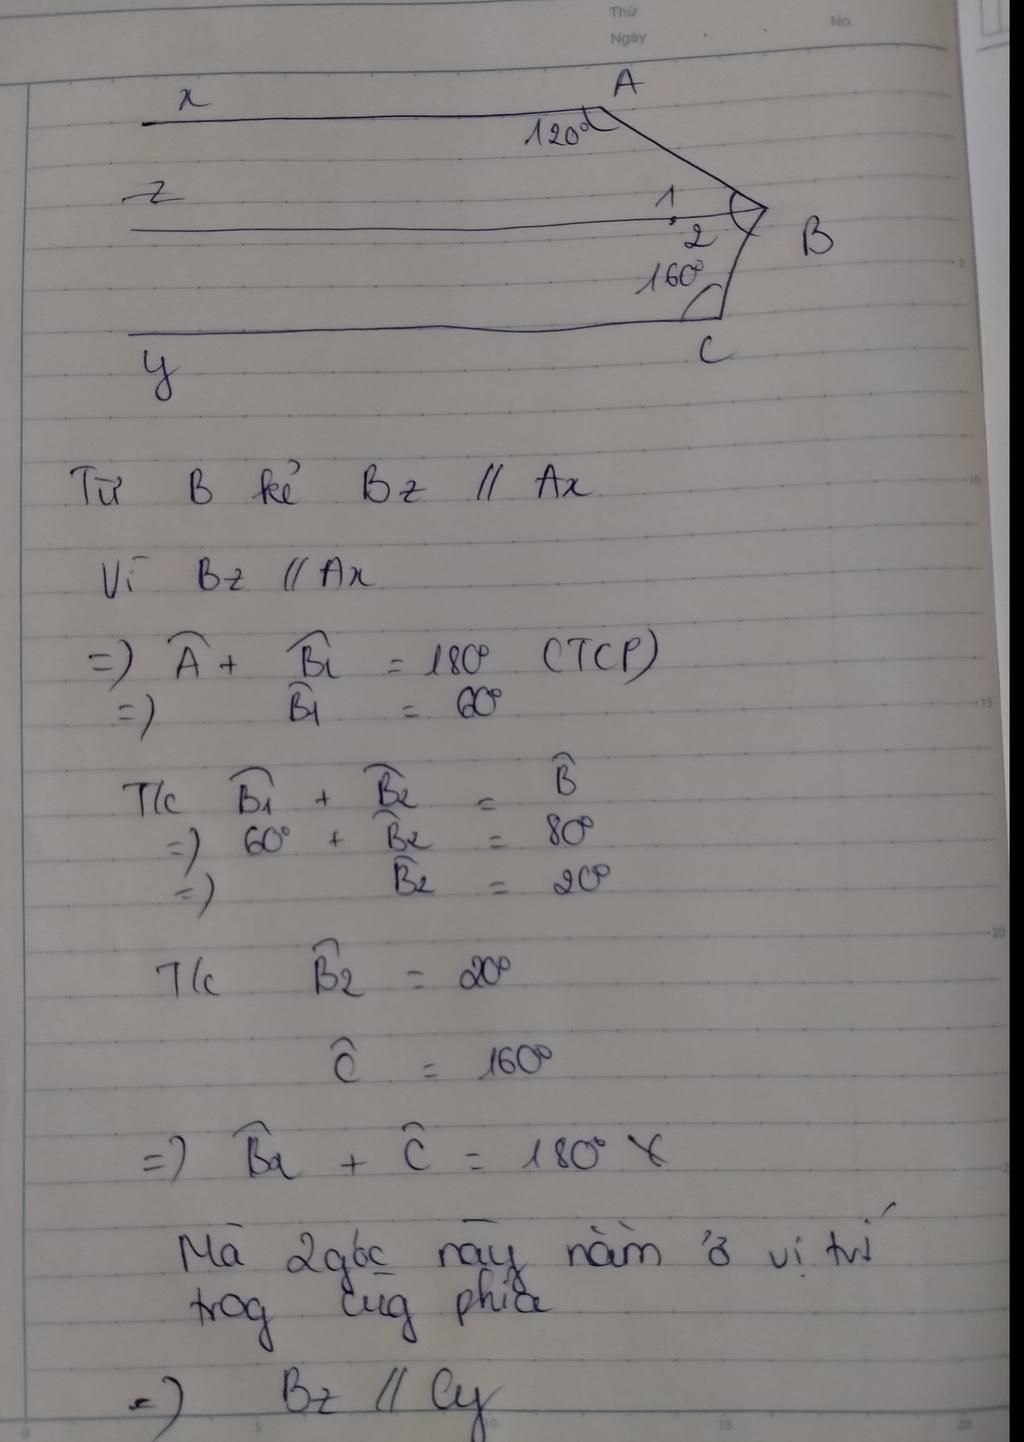 Thứ
No.
Ngày
x
A
120°
z
1
B
2
160°
C
y
Từ B kẻ Bz // Ax
Vì Bz // Ax
=) Â + B̂1 = 180° (TCP)
=) B̂1 = 60°
T/c B̂1 + B̂2 = B̂
=) 60° + B̂2 = 80°
=) B̂2 = 20°
T/c B̂2 = 20°
Ĉ = 160°
=) B̂2 + Ĉ = 180°
Mà 2 góc này nằm ở vị trí
trog cùg phía
=) Bz // Cy
5
10
15
20
0
5
10
15
20